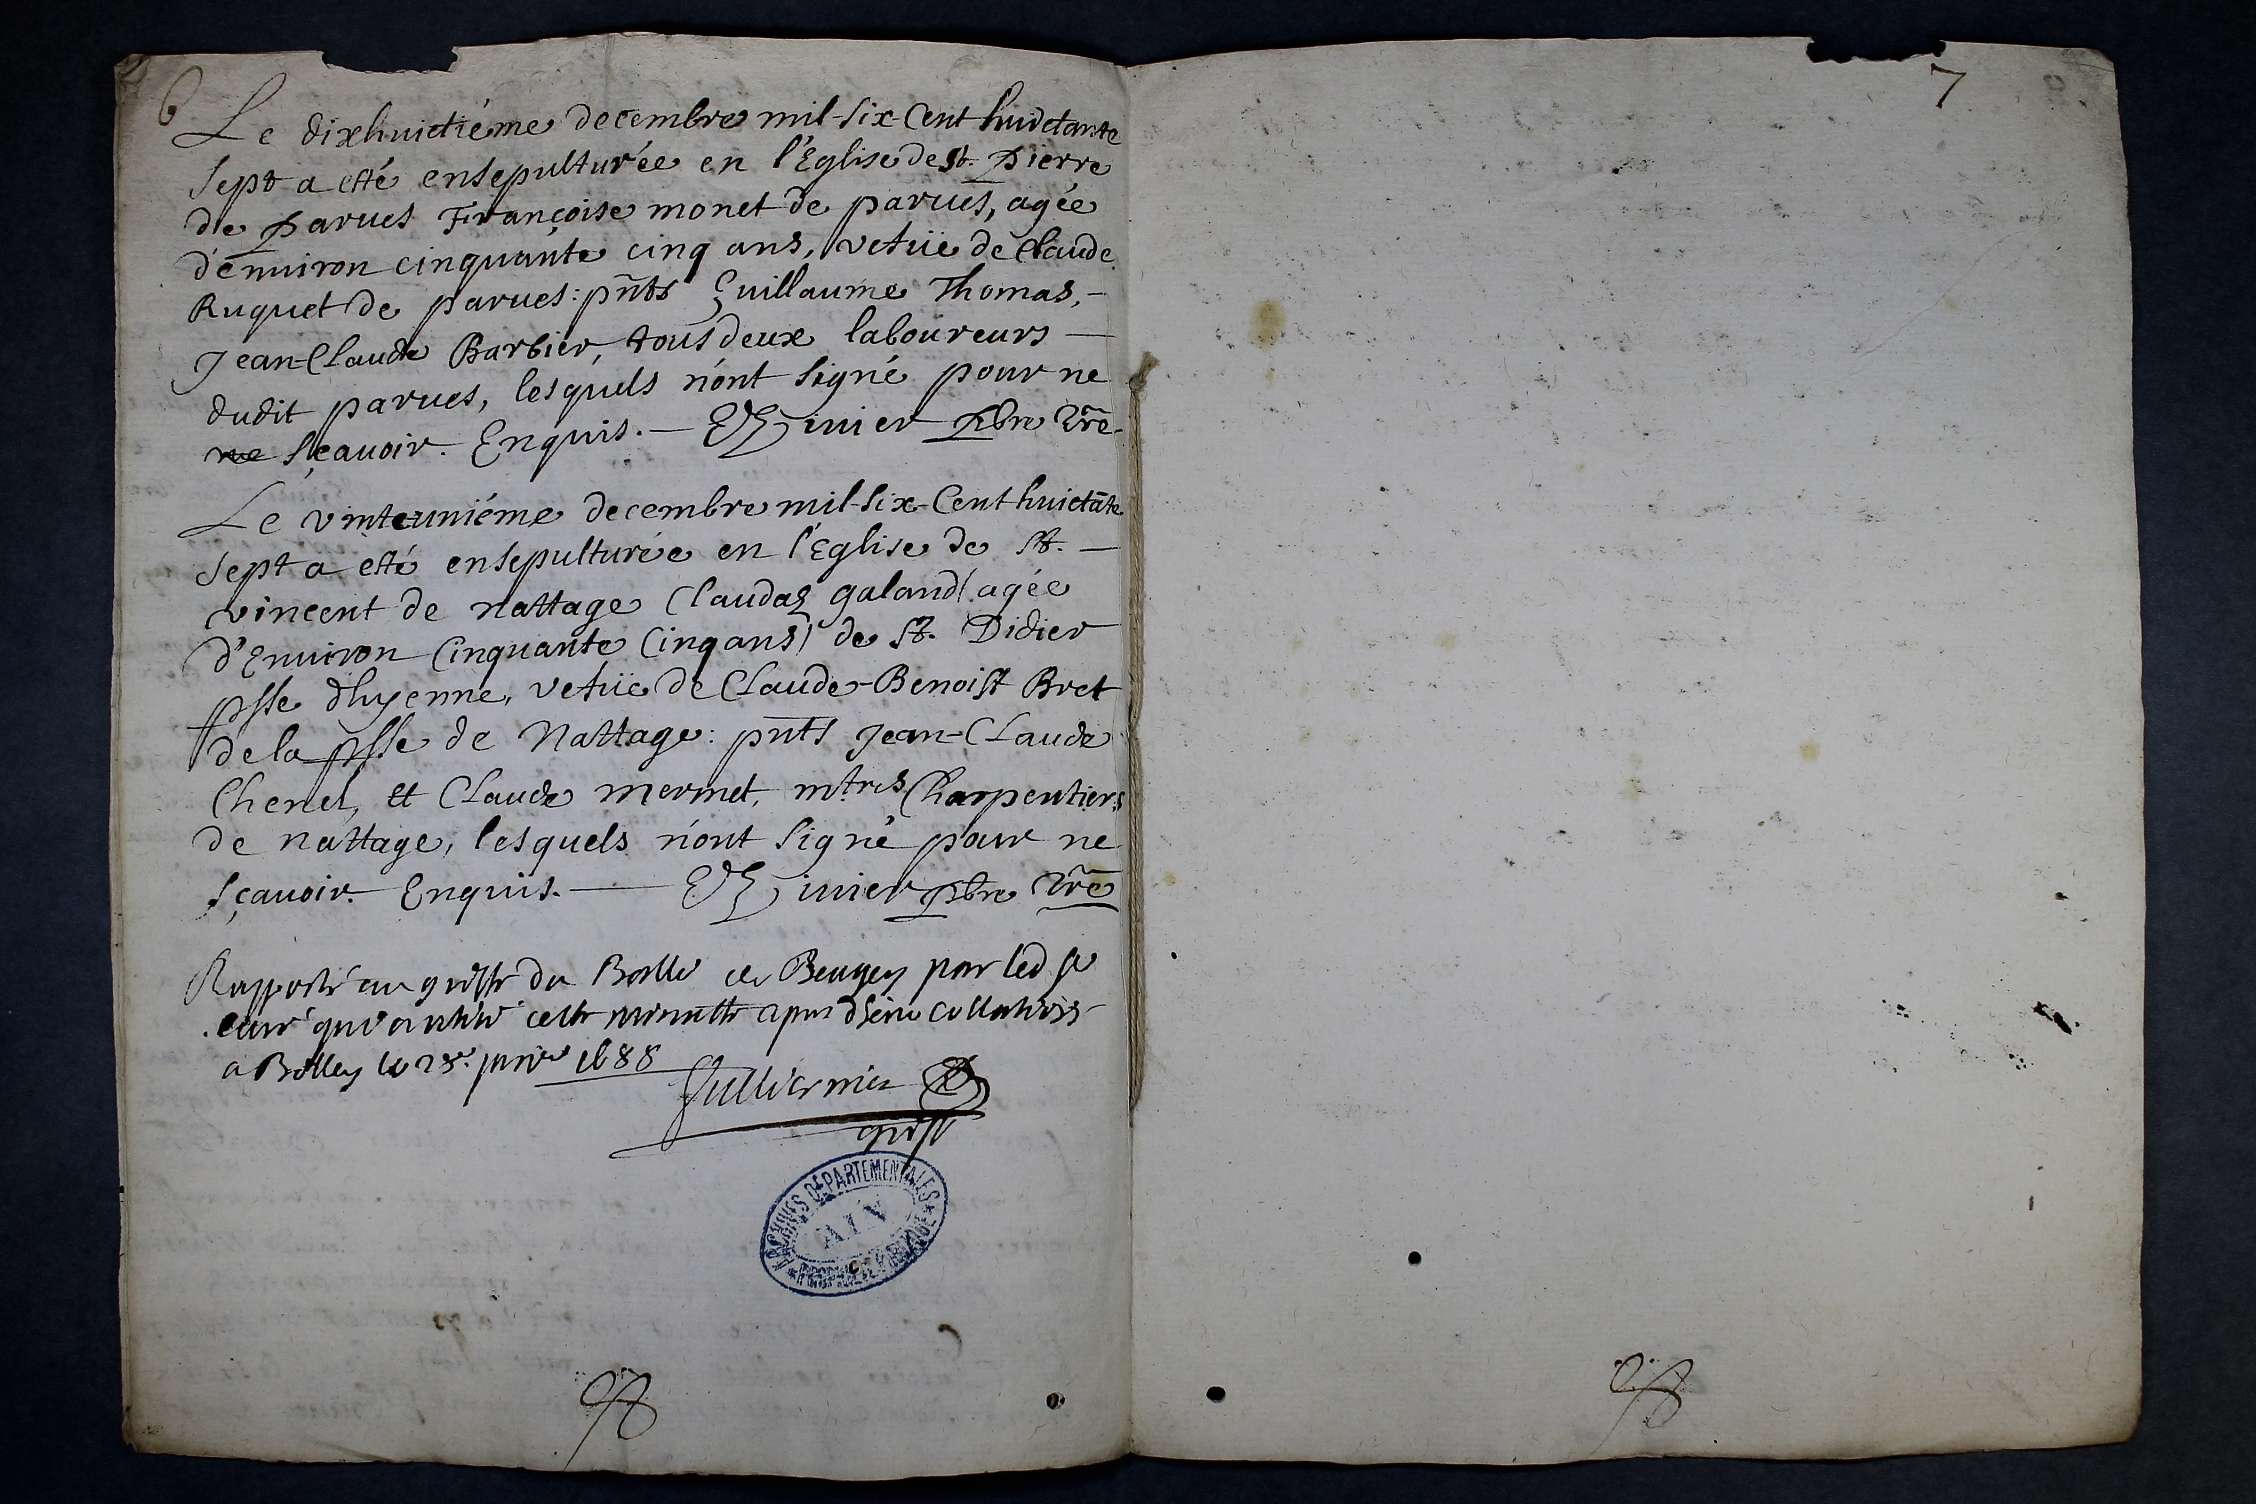 6
Le dixhuictiéme decembre mil-six-Cent huictante
sept a esté ensepulturée en l'Eglise de st. pierre
de parues Françoise monet de parues, agée
d'enuiron cinquante cinq ans, vefüe de Claude
Ruquet de parues: pñts Guillaume Thomas,-
Jean-Claude Barbier, tous deux laboureurs —
dudit parues, lesquels n'ont signé pour ne
ne sçauoir. Enquis. — iuier pbre
Le vinteuniéme decembre mil-six-Cent huictãte
sept a esté ensepulturée en l'Eglise de st. —
vincent de nattage Claudaz galand (agée
d'Enuiron Cinquante Cinq ans) de st. Didier
psse dhyenne, vefüe de Claude-Benoist Bret
de la psse de Nattage: pñts Jean-Claude
Chenel, et Claude mermet, mtres Charpentiers
de nattage, lesquels n'ont signé pour ne
sçauoir. Enquis. — iuier pbre
Rapporté au greffe du Baille de Beugey par led sr
curé qui a retiré cette minutte apres dheue collation
a Belley le 28e janvr 1688
Gulliermier
greff
ARCHIVES DÉPARTEMENTALES
AIN
7